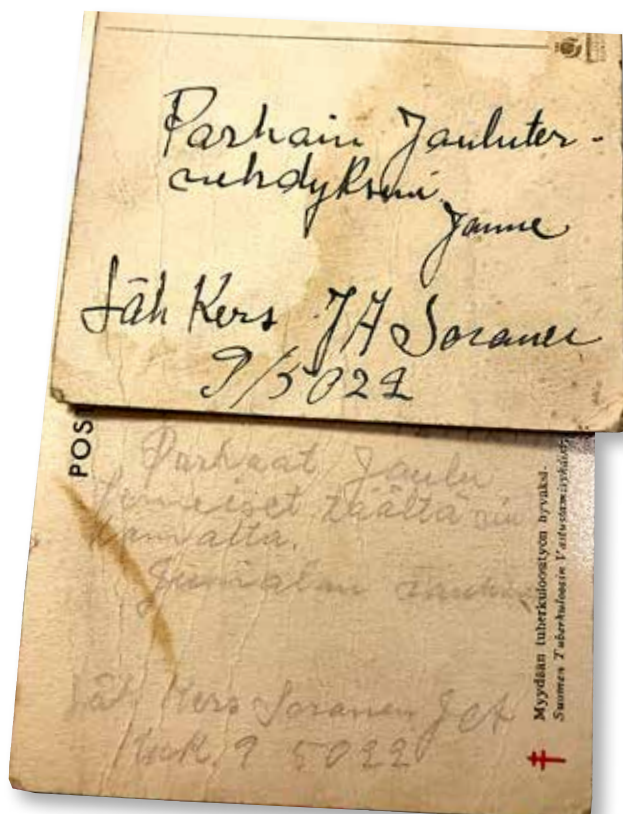 Parhain Jouluter-
vehdyksin
Janne
Läh Kers JA Soranen
9/5022
POS
Parhaat Joulu
toiveiset täältä
Jumalan rauhaa
Läh Kers Soranen J A
9 5022
Myydään tuberkuloosityön hyväksi.
Suomen Tuberkuloosin Vastustamisyhdist